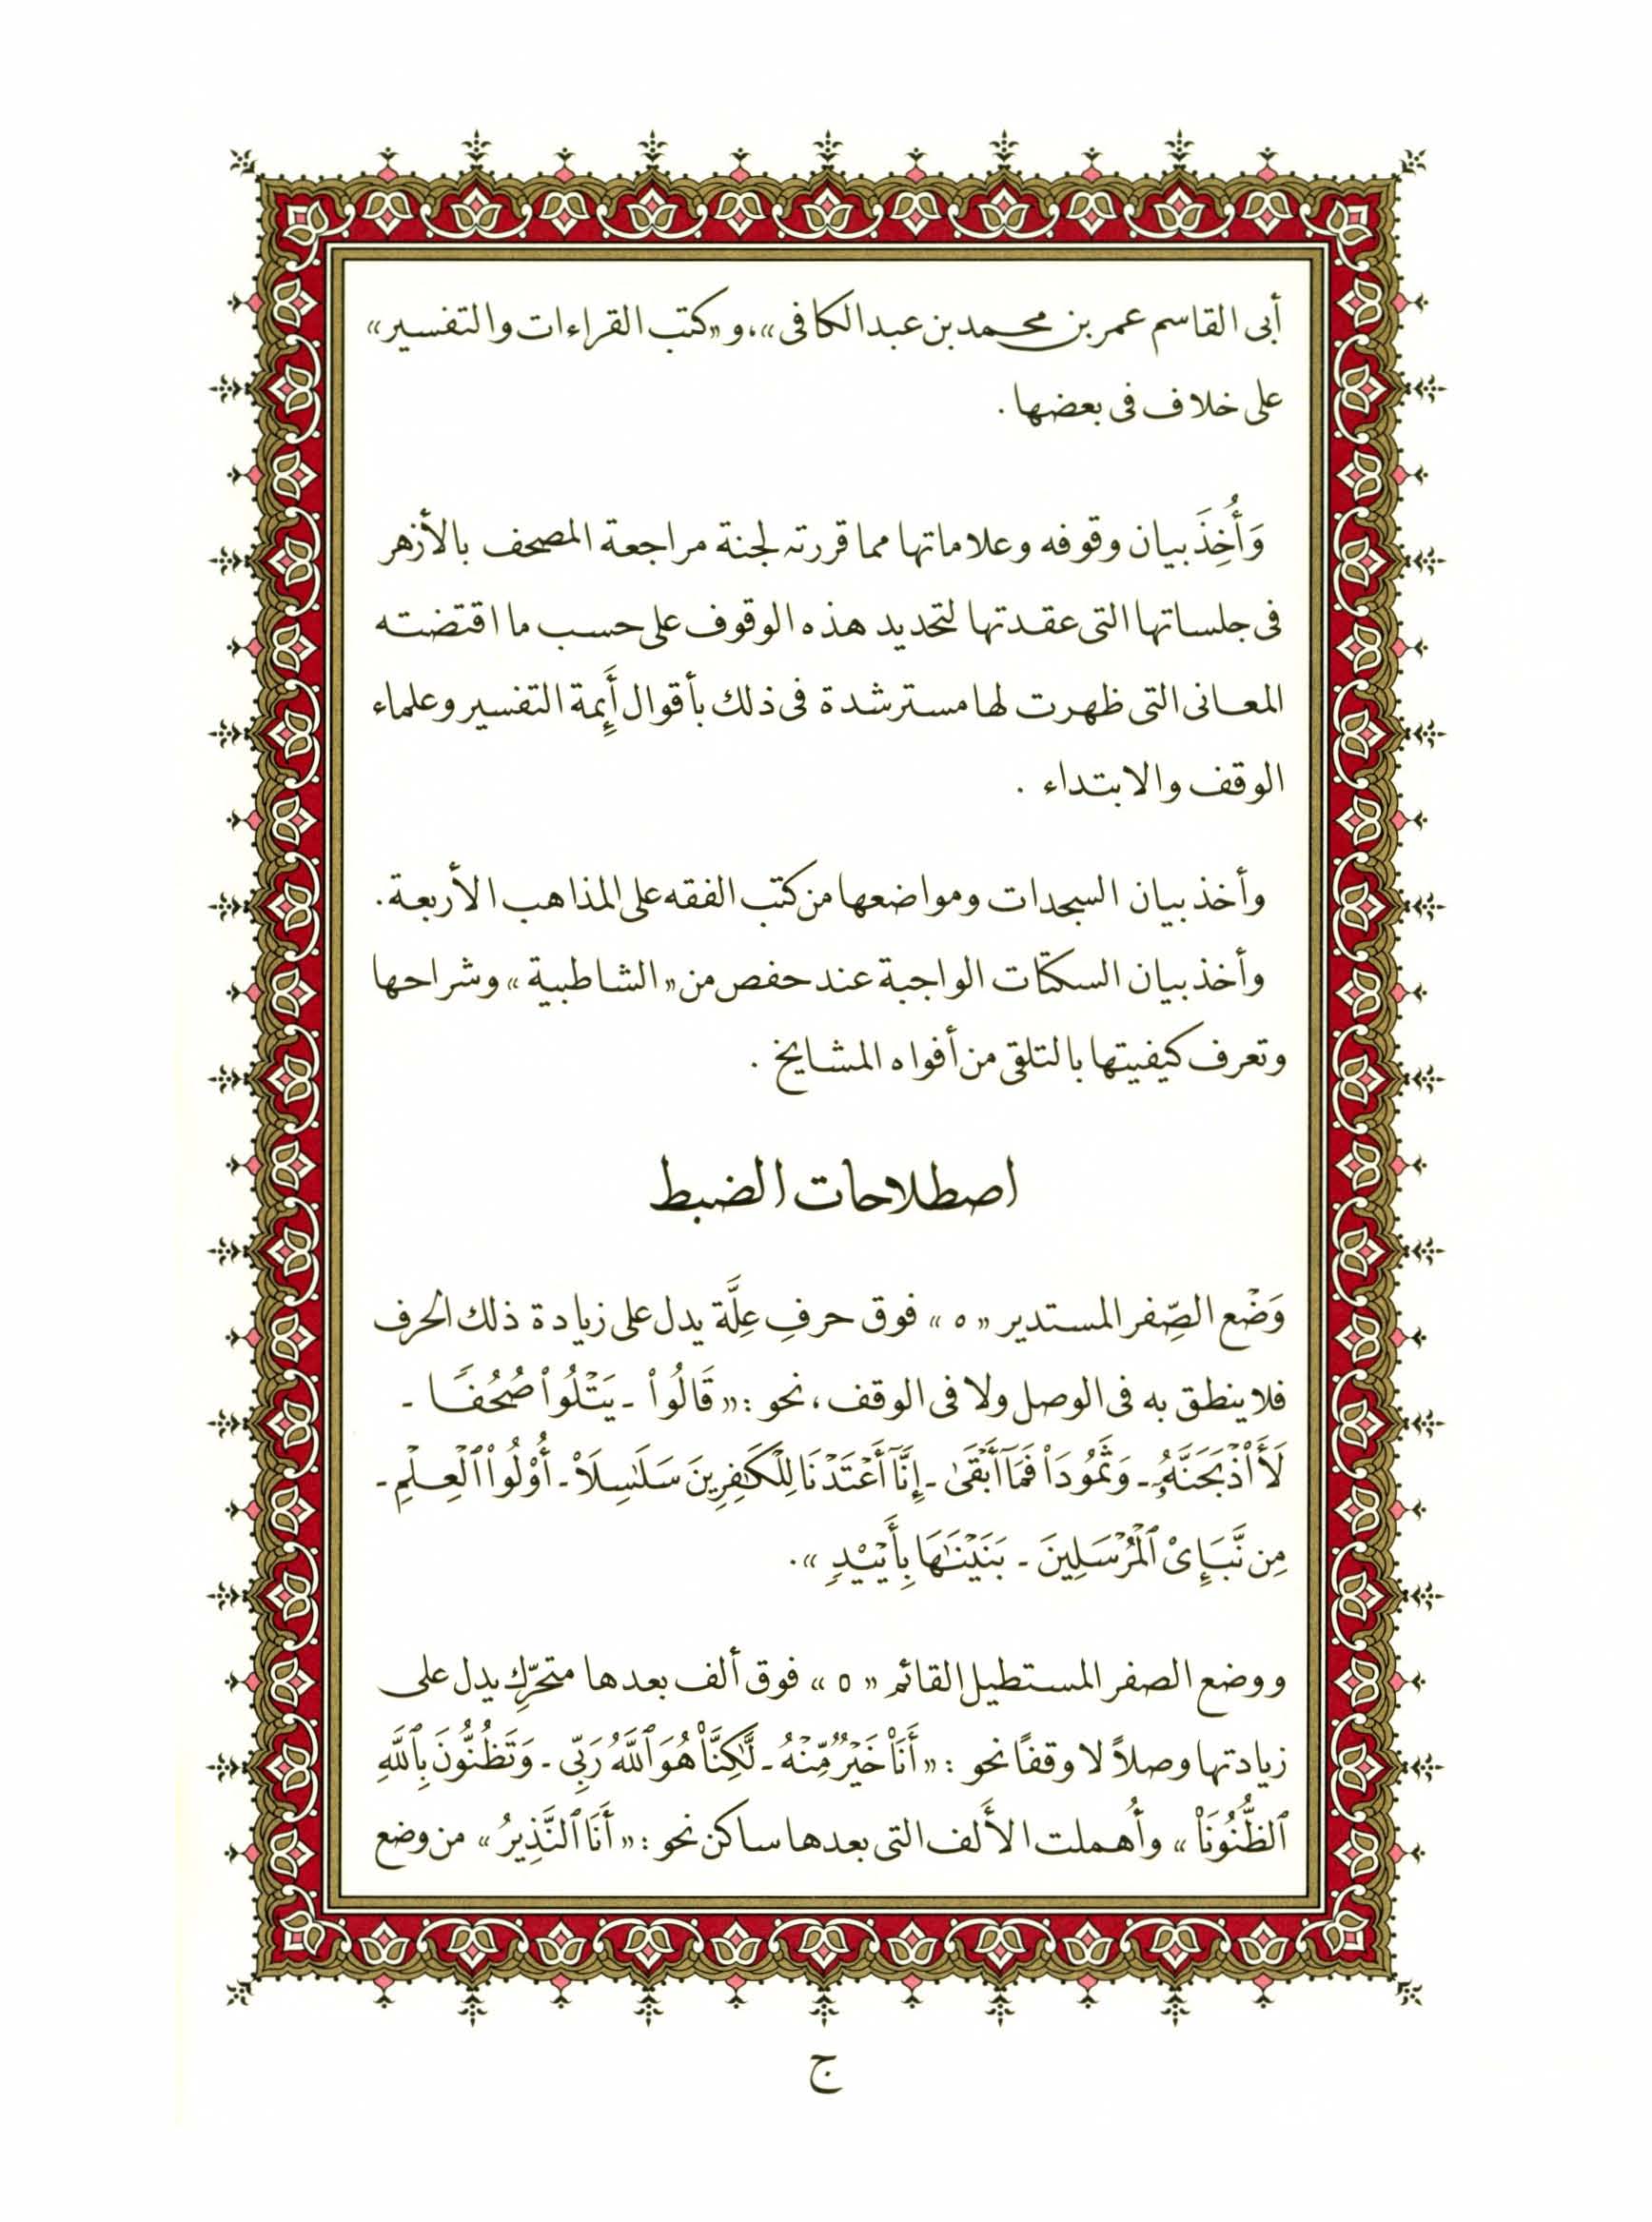 أبى القاسم عمر بن محمد بن عبد الكافى»، و«كتب القراءات والتفسير»
على خلاف فى بعضها .
وَأُخِذَ بيان وقوفه وعلاماتها مما قررته لجنة مراجعة المصحف بالأزهر
فى جلساتها التى عقدتها لتحديد هذه الوقوف على حسب ما اقتضته
المعانى التى ظهرت لها مسترشدة فى ذلك بأقوال أَئِمة التفسير وعلماء
الوقف والابتداء .
وأخذ بيان السجدات ومواضعها من كتب الفقه على المذاهب الأربعة.
وأخذ بيان السكتات الواجبة عند حفص من «الشاطبية» وشراحها
وتعرف كيفيتها بالتلقى من أفواه المشايخ .
اصطلاحات الضبط
وَضْع الصِّفر المستدير «ه» فوق حرفِ عِلَّة يدل على زيادة ذلك الحرف
فلا ينطق به فى الوصل ولا فى الوقف، نحو : «قَالُوا۟ - يَتْلُوا۟ صُحُفًا -
لَأَا۟ذْبَحَنَّهُۥٓ - وَثَمُودَا۟ فَمَآ أَبْقَىٰ - إِنَّآ أَعْتَدْنَا لِلْكَـٰفِرِينَ سَلَـٰسِلَا۟ - أُو۟لُوا۟ ٱلْعِلْمِ -
مِن نَّبَإِى۟ ٱلْمُرْسَلِينَ - بَنَيْنَـٰهَا بِأَيْي۟دٍ».
ووضع الصفر المستطيل القائم «٥» فوق ألف بعدها متحرّك يدل على
زيادتها وصلاً لا وقفًا نحو : «أَنَا۠ خَيْرٌ مِّنْهُ - لَّـٰكِنَّا۠ هُوَ ٱللَّهُ رَبِّى - وَتَظُنُّونَ بِٱللَّهِ
ٱلظُّنُونَا۠» وأُهملت الأَلف التى بعدها ساكن نحو : «أَنَا ٱلنَّذِيرُ» من وضع
ج